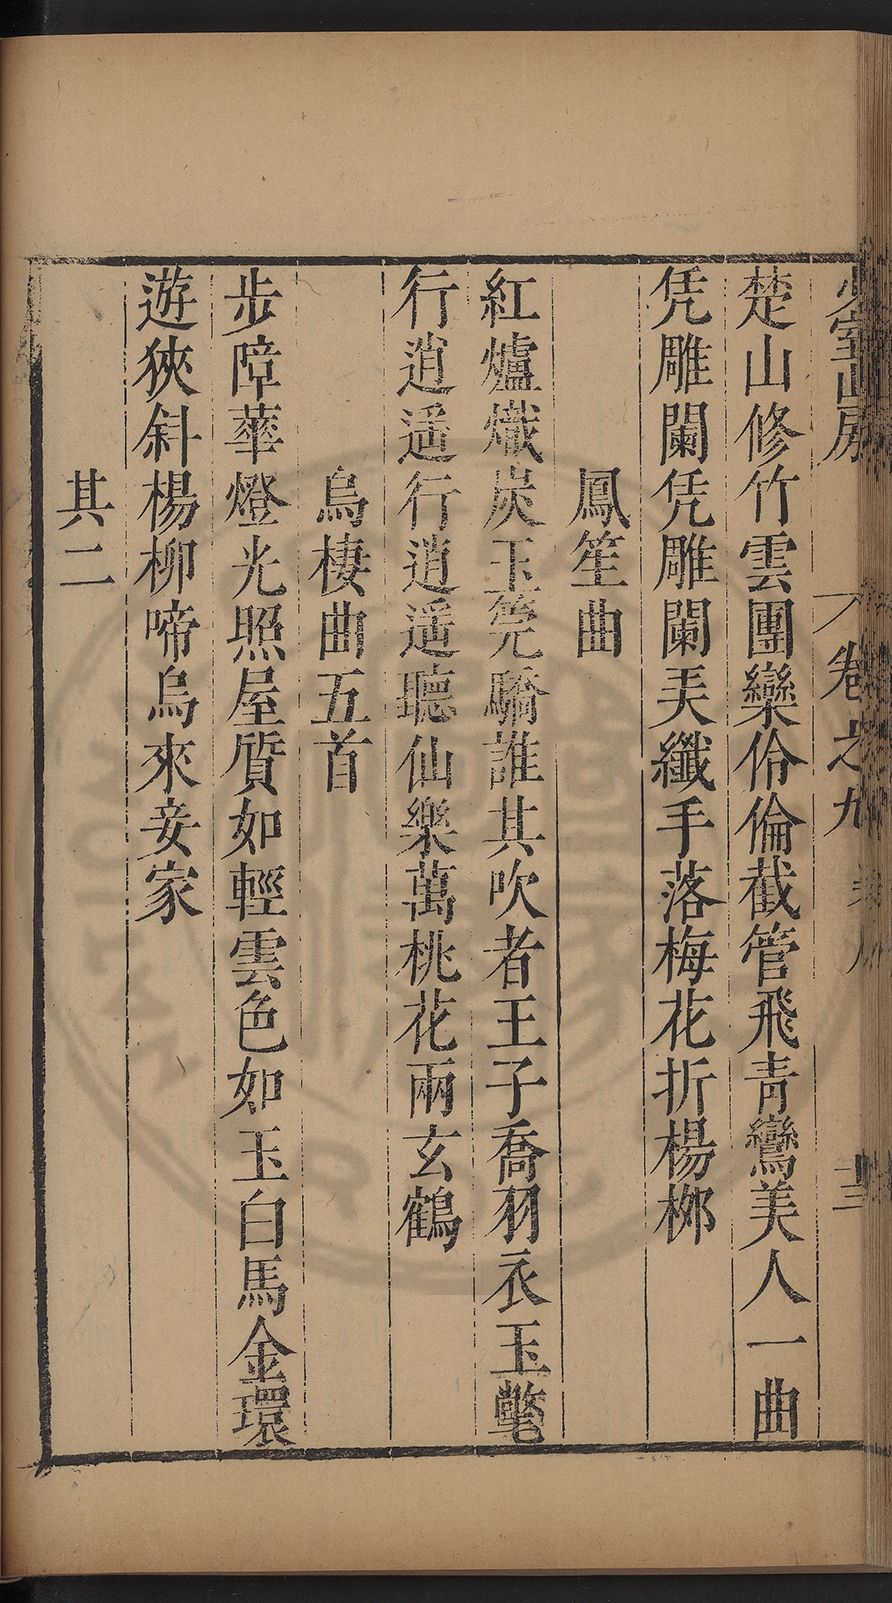 少室山房
卷之九
楚山修竹雲團欒伶倫截管飛青鸞美人一曲
凭雕闌凭雕闌美纖手落梅花折楊柳
鳳笙曲
紅爐熾炭玉筦驕誰其吹者王子喬羽衣玉氅
行逍遥行逍遥聽仙樂萬桃花兩玄鶴
烏棲曲五首
步障華燈光照屋質如輕雲色如玉白馬金環
遊狹斜楊柳啼烏來妾家
其二